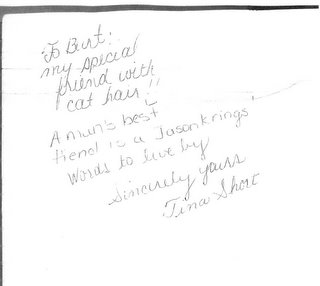 To Burt:
my special
friend with
cat hair!!
A mun's best
fiend is a Jasonkrings'
Words to live by
Sincerely yours
Tina Short